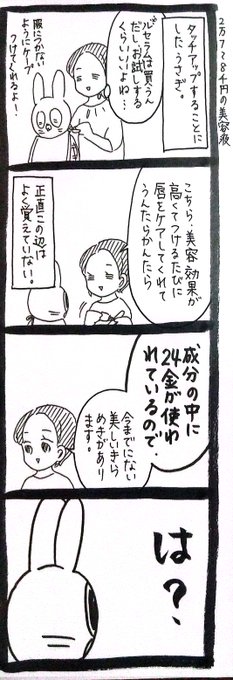 2万7784円の美容液
タッチアップすることに
した、うさぎ。
ルセラは買へん
だし、お試しする
くらいいいよね…
服につかない
ようにケープ
つけてくれるよ！
こちら、美容効果が
高くてつけるたびに
唇をケアしてくれて
うんたらかんたら
正直この辺は
よく覚えていない。
成分の中に
24金が使わ
れているので、
今までにない
美しいきら
めきがあり
ます。
は？